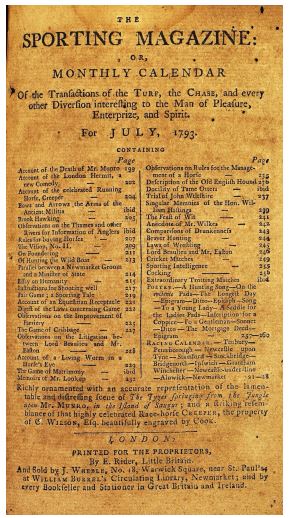 THE
SPORTING MAGAZINE:
OR,
MONTHLY CALENDAR
Of the Transactions of the TURF, the CHASE, and every
other Diversion interesting to the Man of Pleasure,
Enterprize, and Spirit.
For JULY, 1793.
CONTAINING
Page
Account of the Death of Mr. Munro 199
Account of the London Hermit, a
new Comedy — 202
Account of the celebrated Running
Horse, Creeper — 204
Bows and Arrows the Arms of the
Ancient Militia — ibid
Buck Hawking — 205
Observations on the Thames and other
Rivers for Information of Anglers ibid
Rules for buying Horses — 207
The Vision, No. II. — 209
On Foundering — 211
Of Hunting the Wild Boar — 213
Parallel between a Newmarket Groom
and a Minister of State — 214
Essay on Humanity — 215
Instructions for Shooting well — 217
Fair Game; a Sporting Tale — 219
Account of an Equestrian Receptacle 221
Digest of the Laws concerning Game 222
Observations on the Improvement of
Farriery — 225
The Game of Cribbage — 227
Observations on the Litigation be-
tween Lord Besides and Mr.
Eaton — 228
Account of a Living Worm in a
Horse's Eye — 229
The Game of Matrimony — ibid
Memoirs of Mr. Lookup — 232
Page
Observations on Rules for the Manage-
ment of a Horse — 235
Description of the Old English Hound 236
Docility of Tame Otters — ibid
Trial of John Wilkshire — 237
Singular Memoirs of the Hon. Wil-
liam Hastings — 239
The Fruit of Wit — 241
Anecdotes of Mr. Wilkes — 242
Comparisons of Drunkenness — 243
Beaver Hunting — 244
Laws of Wrestling — 245
Lord Besides and Mr. Eaton — 246
Cricket Matches — 249
Sporting Intelligence — 253
Cocking — 256
Extraordinary Trotting Matches ibid
POETRY.—A Hunting Song—On the
Pads—The Longest Day
—Epigram—Ditto—Epitaph—Song
—To a Young Lady—Apology for
the Ladies Pads—Inscription for a
Coppice—To a Gentleman—Sonnet
—Ditto—The Mortgage Deed—
Epigram — 257—262
RACING CALENDAR.—Tenbury—
Peterborough—Newcastle upon
Tyne—Stamford—Stockbridge—
Bridgenorth—Ipswich—Grantham—
Winchester—Newcastle-under-line
—Alnwick—Newmarket — 11—18
Richly ornamented with an accurate representation of the lamen-
table and distressing scene of The Tyger springing from the Jungle
upon Mr. MUNRO, in the Island of Saugur; and a striking resem-
blance of that highly celebrated Race-horse CREEPER, the property
of C. WILSON, Esq. beautifully engraved by COOK.
LONDON:
PRINTED FOR THE PROPRIETORS,
By E. Rider, Little Britain.
And Sold by J. WHEBLE, No. 18, Warwick Square, near St. Paul's;
at WILLIAM BURREL's Circulating Library, Newmarket; and by
every Bookseller and Stationer in Great Britain and Ireland.